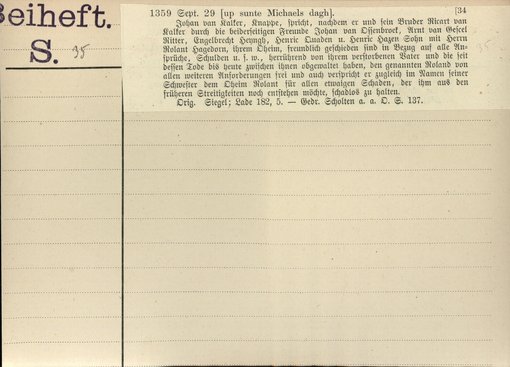 Beiheft.
S. 35
1359 Sept. 29 [up sunte Michaels dagh]. [34
Johan van Kalker, Knappe, spricht, nachdem er und sein Bruder Ricart van
Kalker durch die beiderseitigen Freunde Johan van Ossenbroek, Arnt van Gescel
Ritter, Engelbrecht Heyngh, Henric Quaden u. Henric Hazen Sohn mit Herrn
Rolant Hagedorn, ihrem Oheim, freundlich geschieden sind in Bezug auf alle An-
sprüche, Schulden u. s. w., herrührend von ihrem verstorbenen Vater und die seit
dessen Tode bis heute zwischen ihnen obgewaltet haben, den genannten Roland von
allen weiteren Anforderungen frei und auch verspricht er zugleich im Namen seiner
Schwester dem Oheim Rolant für allen etwaigen Schaden, der ihm aus den
früheren Streitigkeiten noch entstehen möchte, schadlos zu halten.
Orig. Siegel; Lade 182, 5. — Gedr. Scholten a. a. O. S. 137.
35